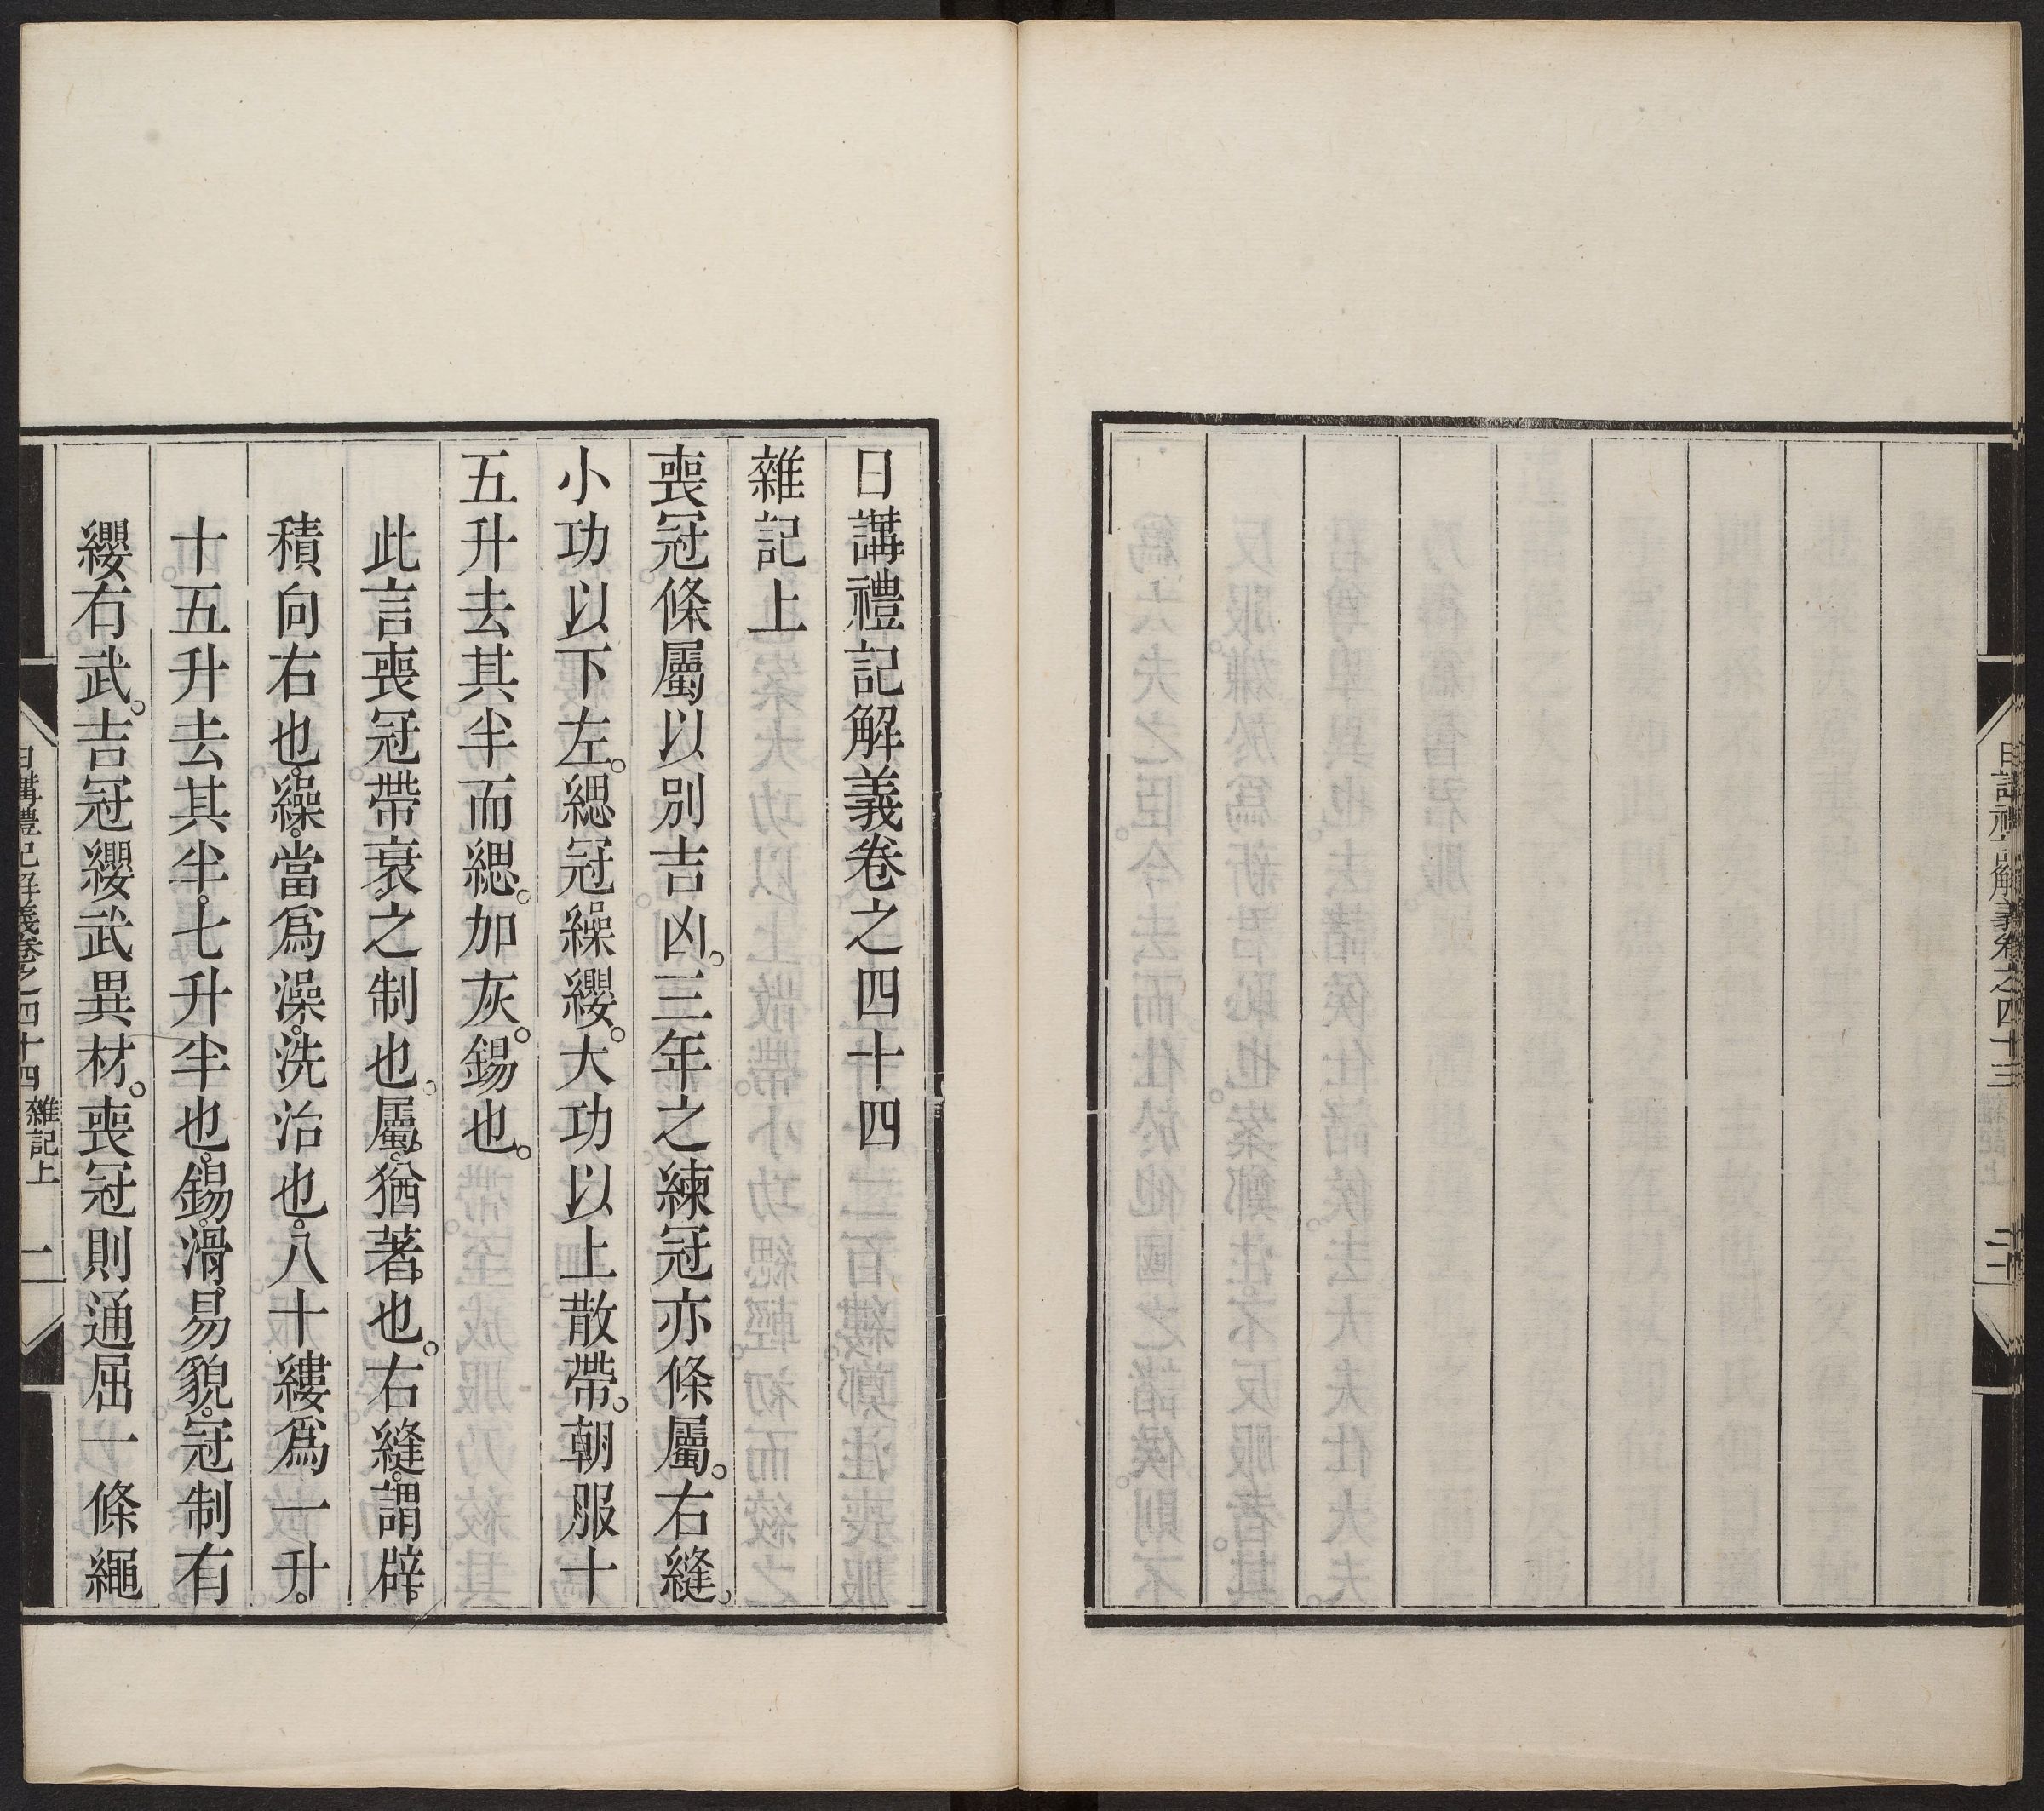 日講禮記解義卷之四十三
日講禮記解義卷之四十四
雜記上
喪冠條屬以別吉凶。三年之練冠亦條屬。右縫。
小功以下左。緦冠繰纓。大功以上散帶。朝服十
五升去其半而緦。加灰。錫也。
此言喪冠帶衰之制也。屬。猶著也。右縫。謂辟
積向右也。繰。當爲澡。洗治也。八十縷爲一升。
十五升去其半。七升半也。錫。滑易貌。冠制有
纓有武。吉冠纓武異材。喪冠則通屈一條繩
日講禮記解義卷之四十四 雜記上 一